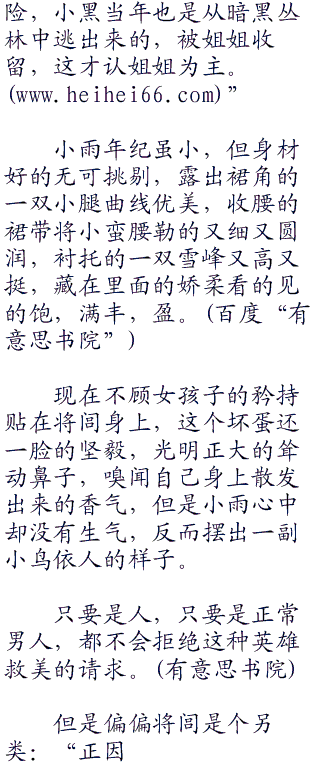 险，小黑当年也是从暗黑丛
林中逃出来的，被姐姐收
留，这才认姐姐为主。
(www.heihei66.com)”
小雨年纪虽小，但身材
好的无可挑剔，露出裙角的
一双小腿曲线优美，收腰的
裙带将小蛮腰勒的又细又圆
润，衬托的一双雪峰又高又
挺，藏在里面的娇柔看的见
的饱，满丰，盈。(百度“有
意思书院”)
现在不顾女孩子的矜持
贴在将闾身上，这个坏蛋还
一脸的坚毅，光明正大的耸
动鼻子，嗅闻自己身上散发
出来的香气，但是小雨心中
却没有生气，反而摆出一副
小鸟依人的样子。
只要是人，只要是正常
男人，都不会拒绝这种英雄
救美的请求。(有意思书院)
但是偏偏将闾是个另
类：“正因